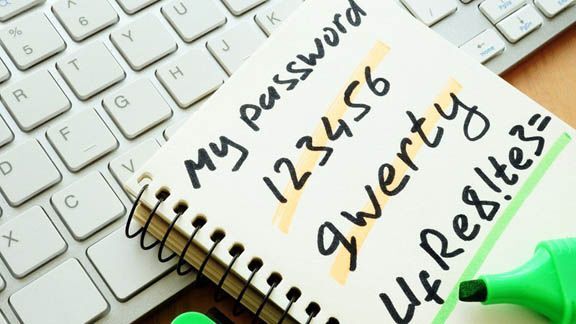 My password
123456
qwerty
UfRe8!te3=
%
5
6
R
T
Y
U
D
F
G
H
J
X
C